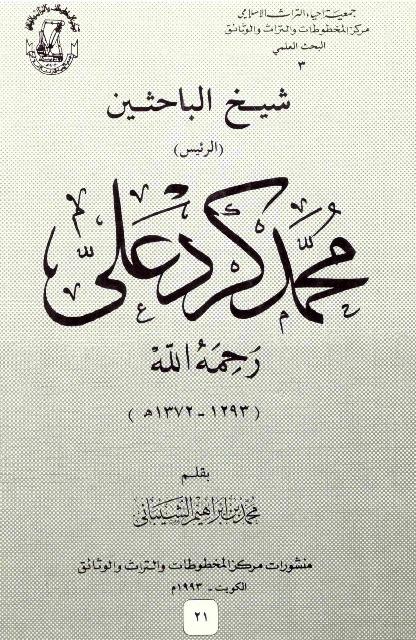 جمعية احياء التراث الاسلامي
مركز المخطوطات والتراث والوثائق
البحث العلمي
٣
شيخ الباحثين
(الرئيس)
محمد كرد علي
رَحِمَهُ اللّه
(١٢٩٣ - ١٣٧٢ هـ)
بقلم
محمد بن ابراهيم الشيباني
منشورات مركز المخطوطات والتراث والوثائق
الكويت - ١٩٩٣م
٢١